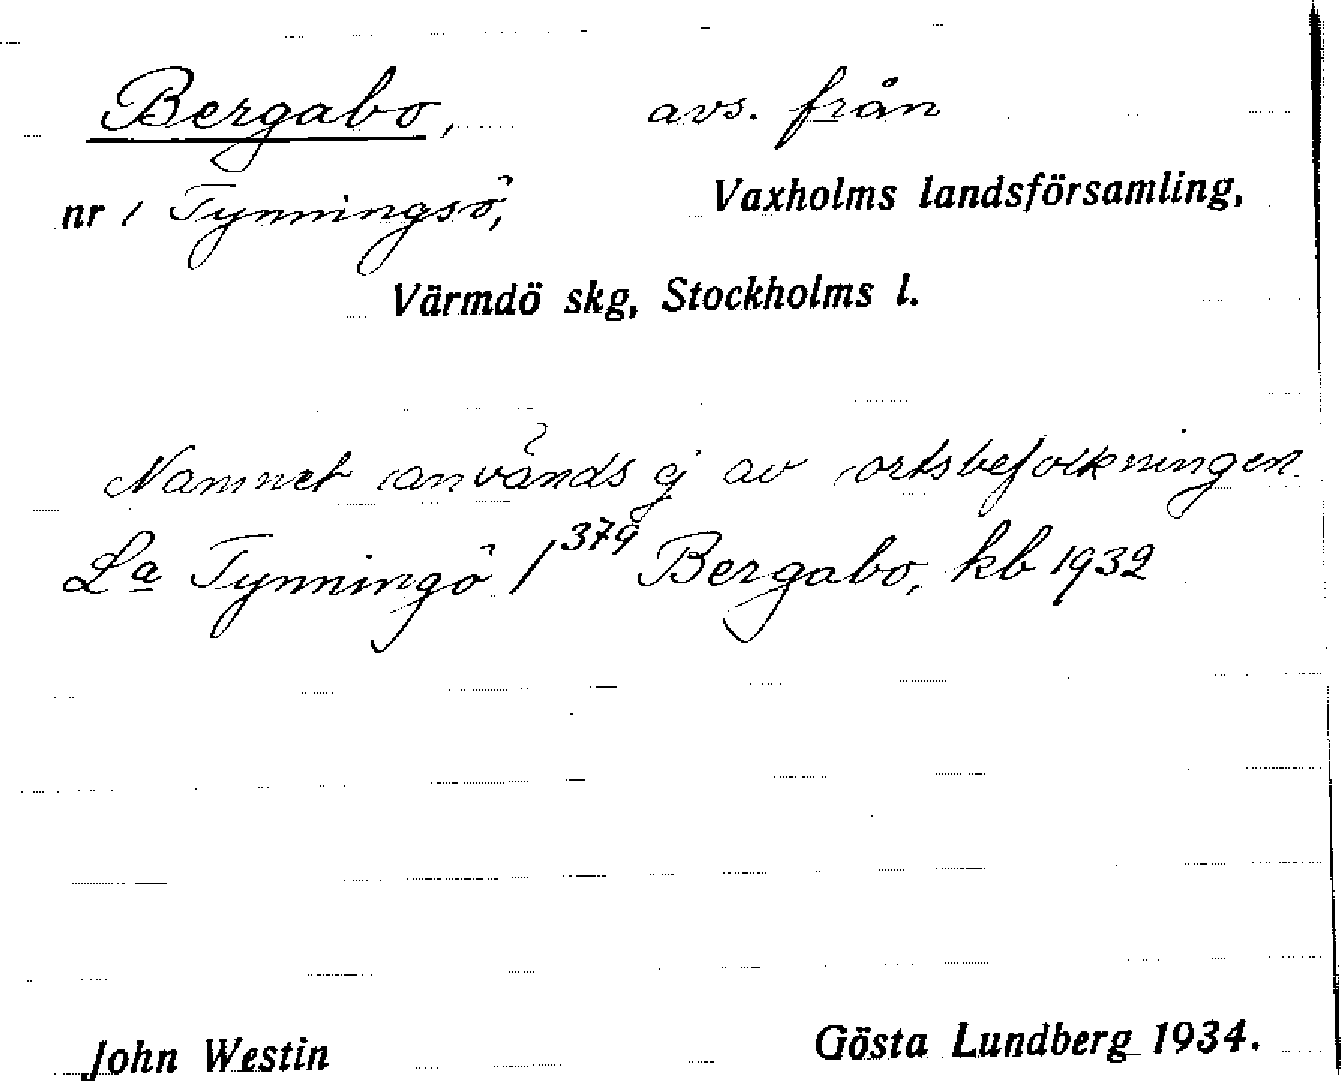 Bergabo, avs. från
nr 1 Tynningsö, Vaxholms landsförsamling,
Värmdö skg, Stockholms l.
Namnet används ej av ortsbefolkningen.
La Tynningö 1 379 Bergabo, kb 1932
John Westin Gösta Lundberg 1934.